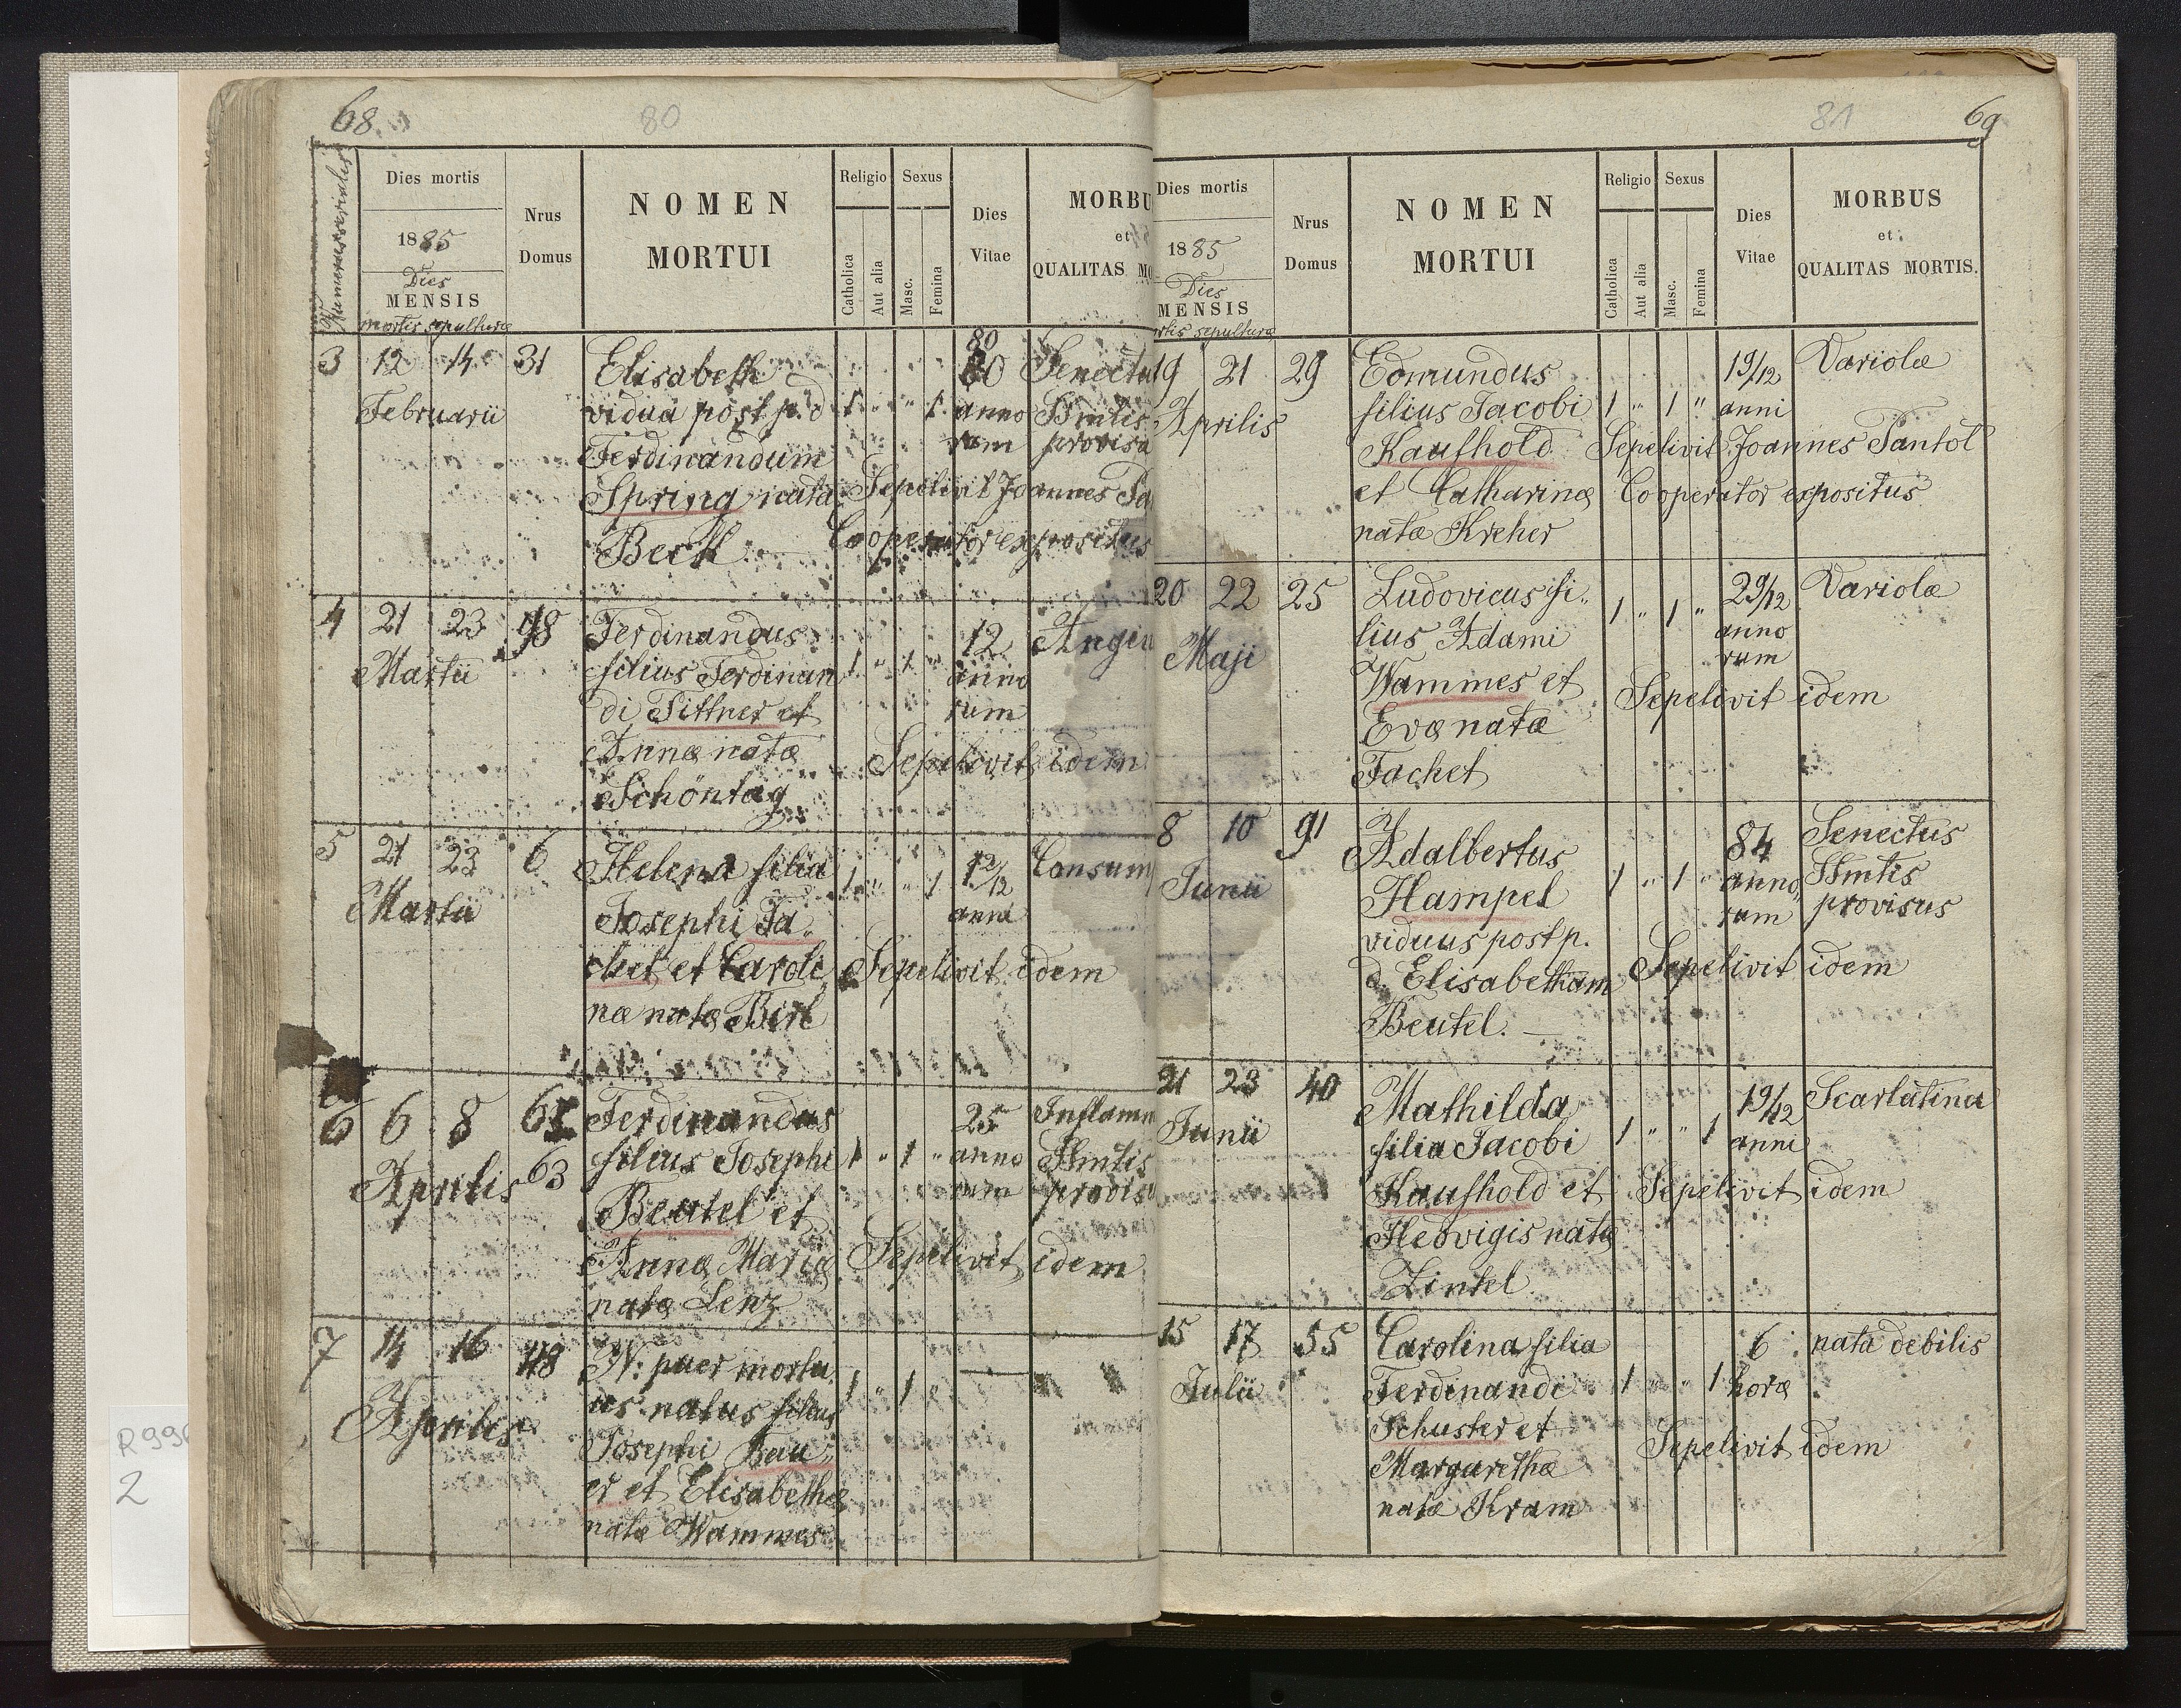 68
80
Numerus serialis
Dies mortis
1885
Dies
MENSIS
mortis sepulturæ
Nrus
Domus
NOMEN
MORTUI
Religio
Catholica
Aut alia
Sexus
Masc.
Femina
Dies
Vitae
MORBU
et
QUALITAS MO
3 12 14 31 Elisabeth 80 Senectu
Februarii vidua post p. d 1 " " 1 anno Ssmtis
Ferdinandum rum provisa
Spring nata Sepelivit Joannes Pa
Beck Cooperator expositus
4 21 23 98 Ferdinandus 12 Angin
Martii filius Ferdinan 1 " 1 " anno
di Pittner et rum
Annæ natæ Sepelivit idem
Schöntag
5 21 23 6 Helena filia 1 " " 1 1 2/12 Consum
Martii Josephi Ja anni
chet et Caroli Sepelivit idem
næ natæ Birl
6 6 8 Ferdinandus 25 Inflamm
Aprilis 63 filius Josephi 1 " 1 " anno Ssmtis
Beutel et rum provisu
Annæ Mariæ Sepelivit idem
natæ Lenz
7 14 16 48 N: puer mortu 1 " 1 " — " "
Aprilis us natus filius
Josephi Bau
er et Elisabethæ
natæ Wammes
81
69
Dies mortis
1885
Dies
MENSIS
rtis sepulturæ
Nrus
Domus
NOMEN
MORTUI
Religio
Catholica
Aut alia
Sexus
Masc.
Femina
Dies
Vitae
MORBUS
et
QUALITAS MORTIS.
19 21 29 Edmundus 1 9/12 Variolæ
Aprilis filius Jacobi 1 " 1 " anni
Kaufhold Sepelivit Joannes Pantol
et Catharinæ Cooperator expositus
natæ Kreher
20 22 25 Ludovicus fi 1 " 1 " 2 9/12 Variolæ
Maji lius Adami anno
Wammes et rum
Evæ natæ Sepelivit idem
Jachet
8 10 91 Adalbertus 84 Senectus
Junii Hampel 1 " 1 " anno Ssmtis
viduus post p. rum provisus
d. Elisabetham Sepelivit idem
Beutel. —
21 23 40 Mathilda 1 9/12 Scarlatina
Junii filia Jacobi 1 " " 1 anni
Kaufhold et Sepelivit idem
Hedvigis natæ
Zintel
15 17 55 Carolina filia 6 nata debilis
Julii Ferdinandi 1 " " 1 horæ
Schuster et
Margarethæ Sepelivit idem
natæ Kram
R 990
2